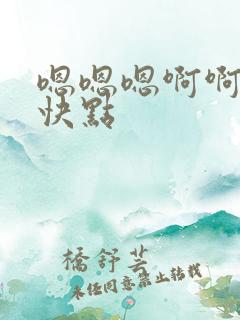 嗯嗯嗯啊啊
快點
橋舒芸
未経同意禁止转载